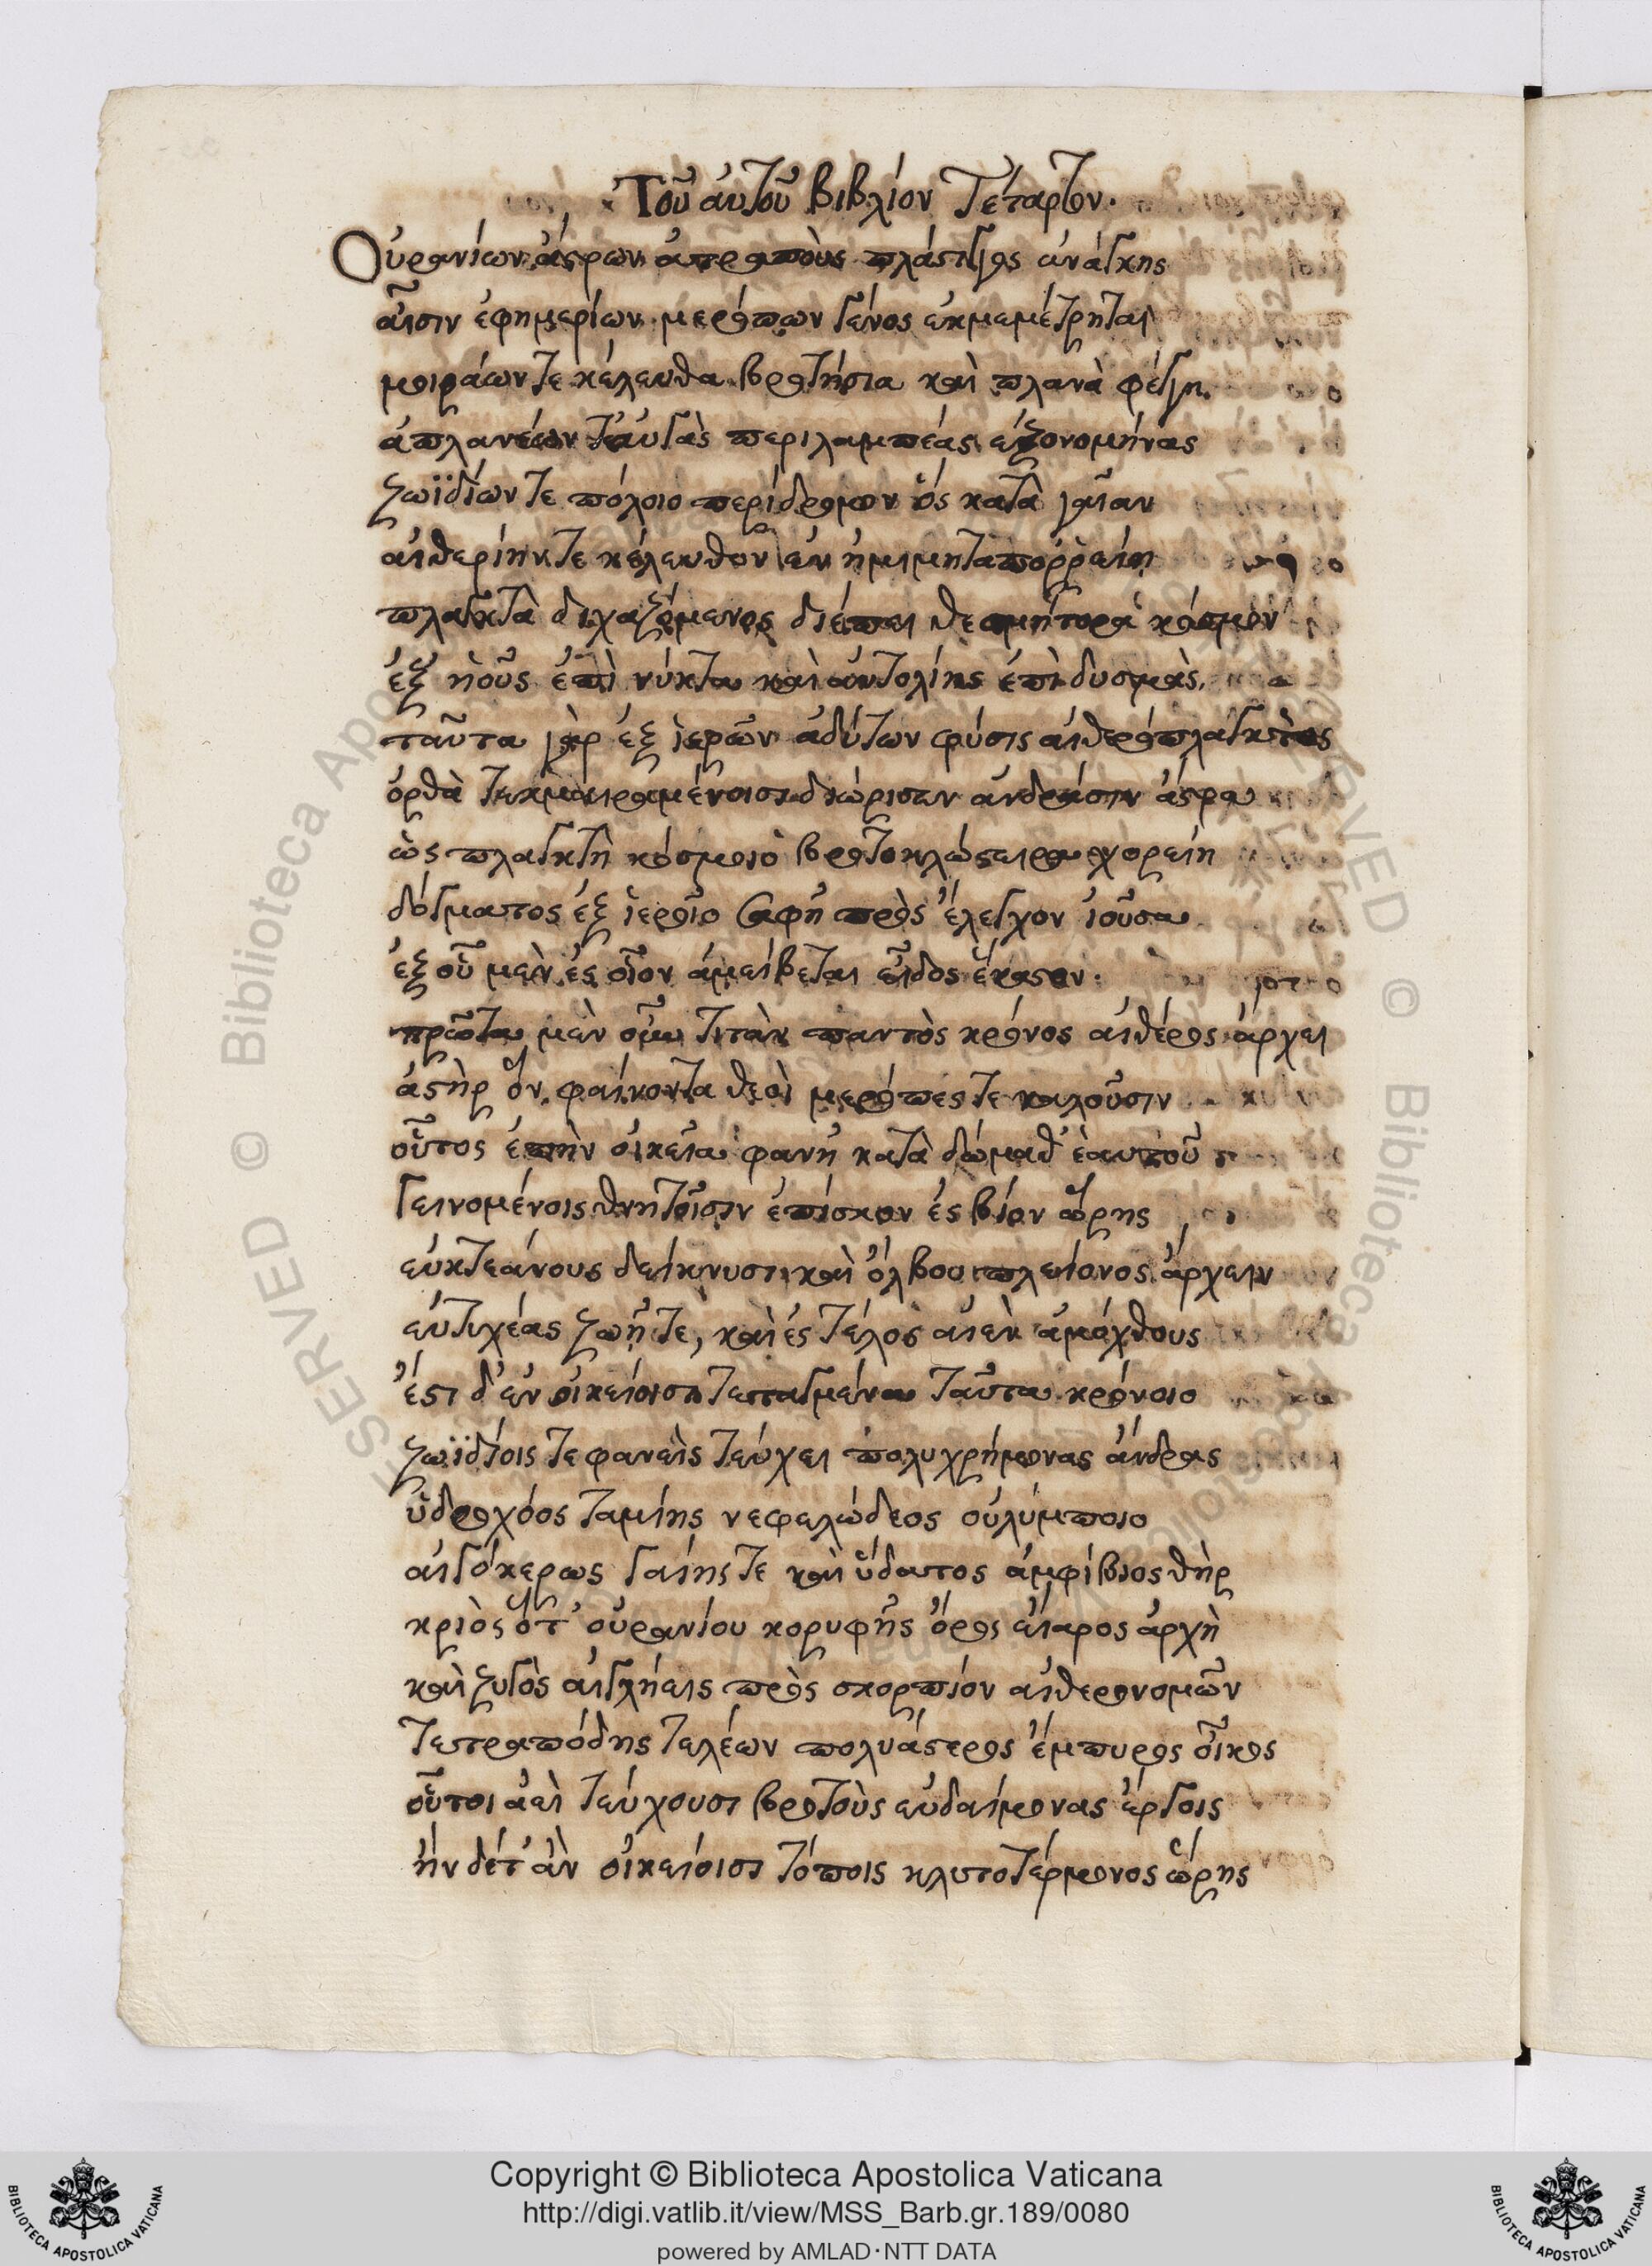 Τοῦ αὐτοῦ βιβλίον Τέταρτον.
Οὐρανίων ἄστρων ἀτραποὺς πλάστιγγος ἀνάγκης
αἷσιν ἐφημερίων μερόπων γένος ἐκμεμέτρηται
μοιράων τε κέλευθα βροτήσια καὶ πλανὰ φέγγη.
ἀπλανέων τ' αὐγὰς περιλαμπέας ἐξονομήνας
ζωϊδίων τε πόλοιο περίδρομον ὃς κατὰ γαῖαν
αἰθερίην τε κέλευθον ἐν
πλαγκτὰ διχαζόμενος διέπει κόσμον
ἐξ ἠοῦς ἐπὶ νύκτα καὶ ἀντολίης ἐπὶ δυσμὰς.
ταῦτα γὰρ ἐξ ἱερῶν ἀδύτων φύσις αἰθερόπλαγκτος
ὀρθὰ τεκμαιραμένοισι διώρισεν ἀνδράσιν ἄστρα
ὡς πλαγκτὴ κόσμοιο χορείη
δόγματος ἐξ ἱεροῖο σαφῆ πρὸς ἔλεγχον ἰοῦσα
ἐξ οὗ μὲν ἐς οἷον ἀμείβεται εἶδος ἕκαστον.
πρῶτα μὲν οὖν τιτὰν παντὸς κρόνος αἰθέρος ἄρχει
ἀστὴρ ὃν φαίνοντα θεοὶ μερόπές τε καλοῦσιν
οὗτος ἐπὴν οἰκεῖα φανῆ κατὰ δώμαθ' ἑαυτοῦ
γεινομένοις θνητοῖσιν ἐπίσκοπον ἐς βίον ὥρης
εὐκτεάνους δείκνυσι καὶ ὄλβου πλείονος ἄρχειν
εὐτυχέας ζωῆ τε, καὶ ἐς τέλος αἰὲν ἀμόχθους
ἔστι δ' ἐν οἰκείοισι τεταγμένα ταῦτα κρόνοιο
ζωϊδίοις τε φανεὶς τεύχει πολυχρήμονας ἄνδρας
ὑδροχόος ταμίης νεφελώδεος οὐλύμποιο
αἰγόκερως γαίης τε καὶ ὕδατος ἀμφίβιος θὴρ
κριὸς ὅτ' οὐρανίου κορυφῆς ὄρος εἴαρος ἀρχὴ
καὶ ζυγὸς αἰγλήεις πρὸς σκορπίον αἰθερονομῶν
τετραπόδης τελέων πολυάστερος ἔμπυρος οἶκος
οὗτοι ἀεὶ τεύχουσι βροτοὺς εὐδαίμονας ἔργοις
ἢν δέ τ' ἂν οἰκείοισι τόποις κλυτοτέρμονος ὥρης
Copyright © Biblioteca Apostolica Vaticana
http://digi.vatlib.it/view/MSS_Barb.gr.189/0080
powered by AMLAD·NTT DATA
BIBLIOTECA APOSTOLICA VATICANA
BIBLIOTECA APOSTOLICA VATICANA